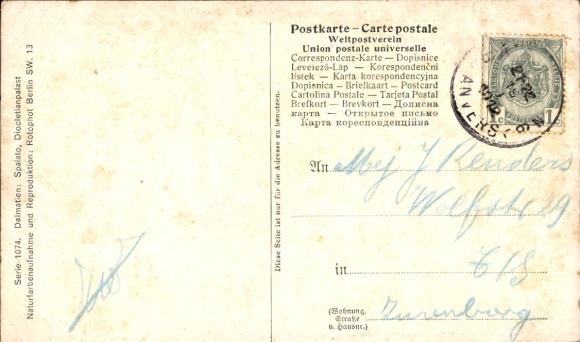 Serie 1074. Dalmatien: Spalato, Diocletianpalast
Naturfarbenaufnahme und Reproduktion: Rotophot Berlin SW. 13
Diese Seite ist nur für die Adresse zu benutzen.
Postkarte – Carte postale
Weltpostverein
Union postale universelle
Correspondenz-Karte — Dopisnice
Levelező-Lap — Korespondenční
lístek — Karta korespondencyjna
Dopisnica — Briefkaart — Postcard
Cartolina Postale — Tarjeta Postal
Brefkort — Brevkort — Дописна
карта — Открытое письмо
Карта кореспонденційна
ANVERS
1c 1c
An Mej J Renders
Wolfstr 29
in
(Wohnung, Straße u. Hausnr.)
Zurenborg